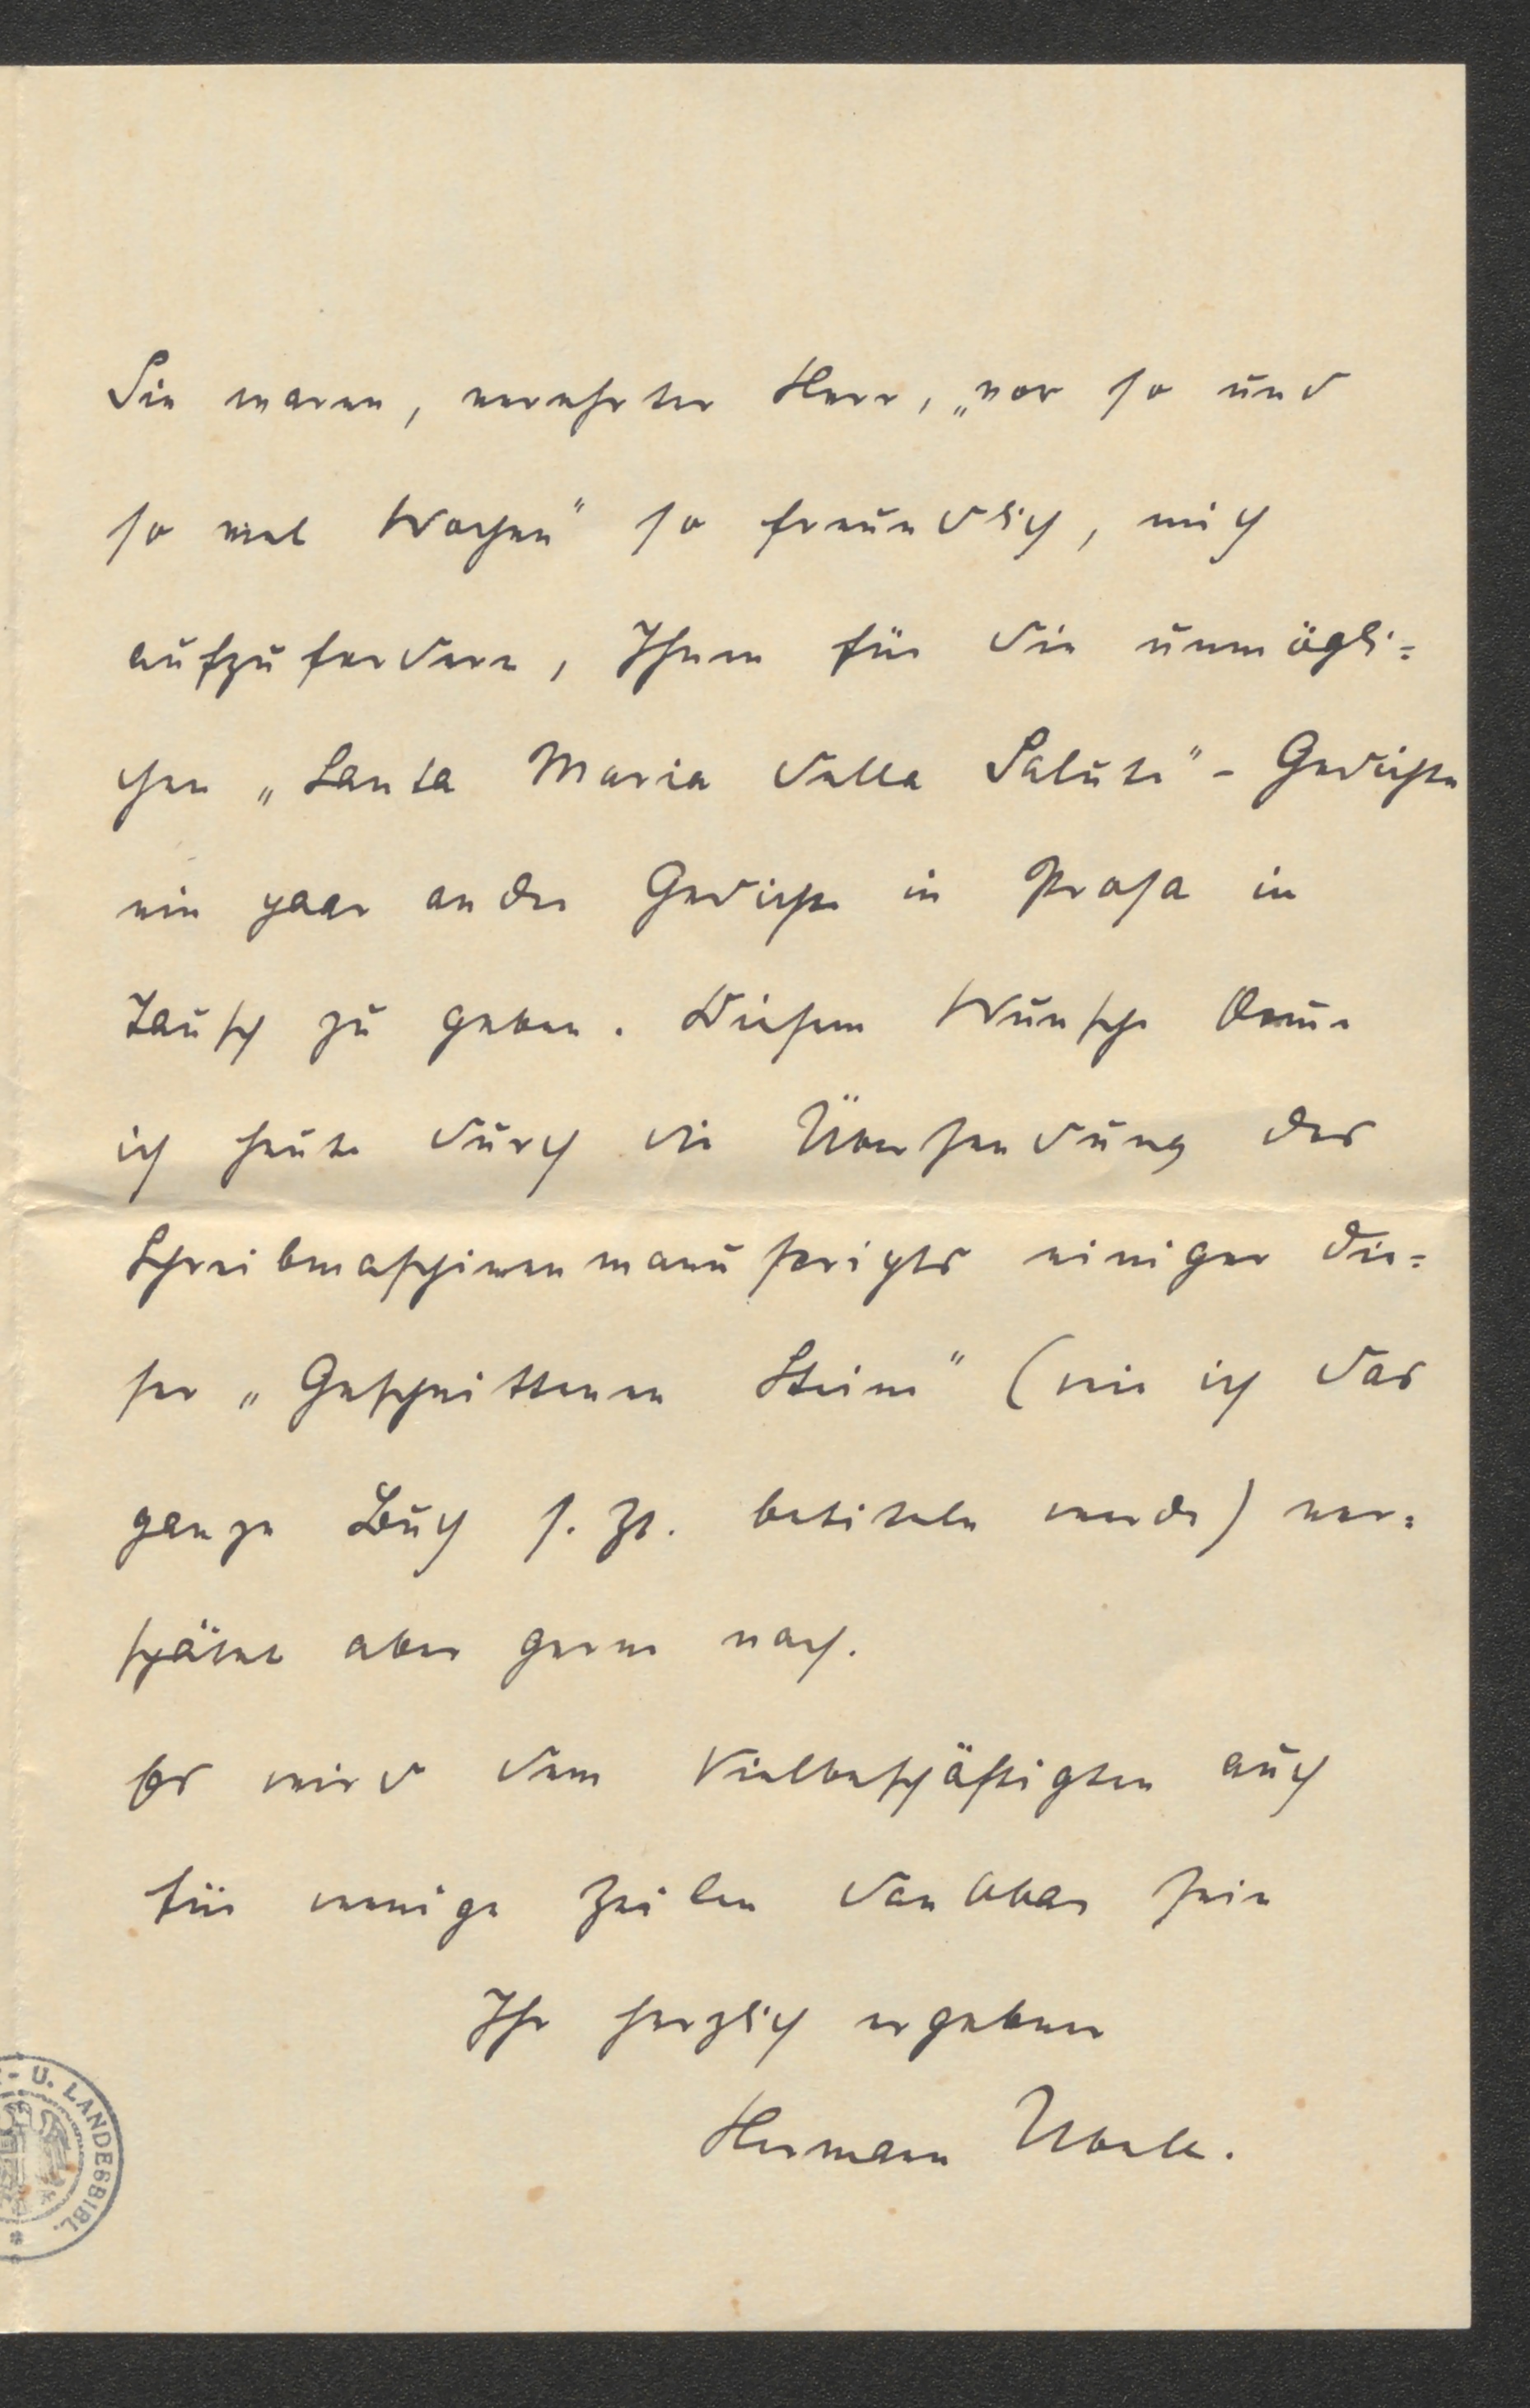 Sie waren, verehrter Herr, „vor so und
so viel Wochen" so freundlich, mich
aufzufordern, Ihnen für die unmögli=
chen „Santa Maria della Salute" - Gedichte
ein paar andre Gedichte in Prosa in
Tausch zu geben. Diesem Wunsche komme
ich heute durch die Übersendung des
Schreibmaschinenmanuskripts einiger die=
ser „Geschnittenen Steine" (wie ich das
ganze Buch s. Zt. betiteln werde) ver=
spätet aber gerne nach.
Es wird dem Vielbeschäftigten auch
für wenige Zeilen dankbar sein
Ihr herzlich ergebener
Hermann
U. LANDESBIBL.